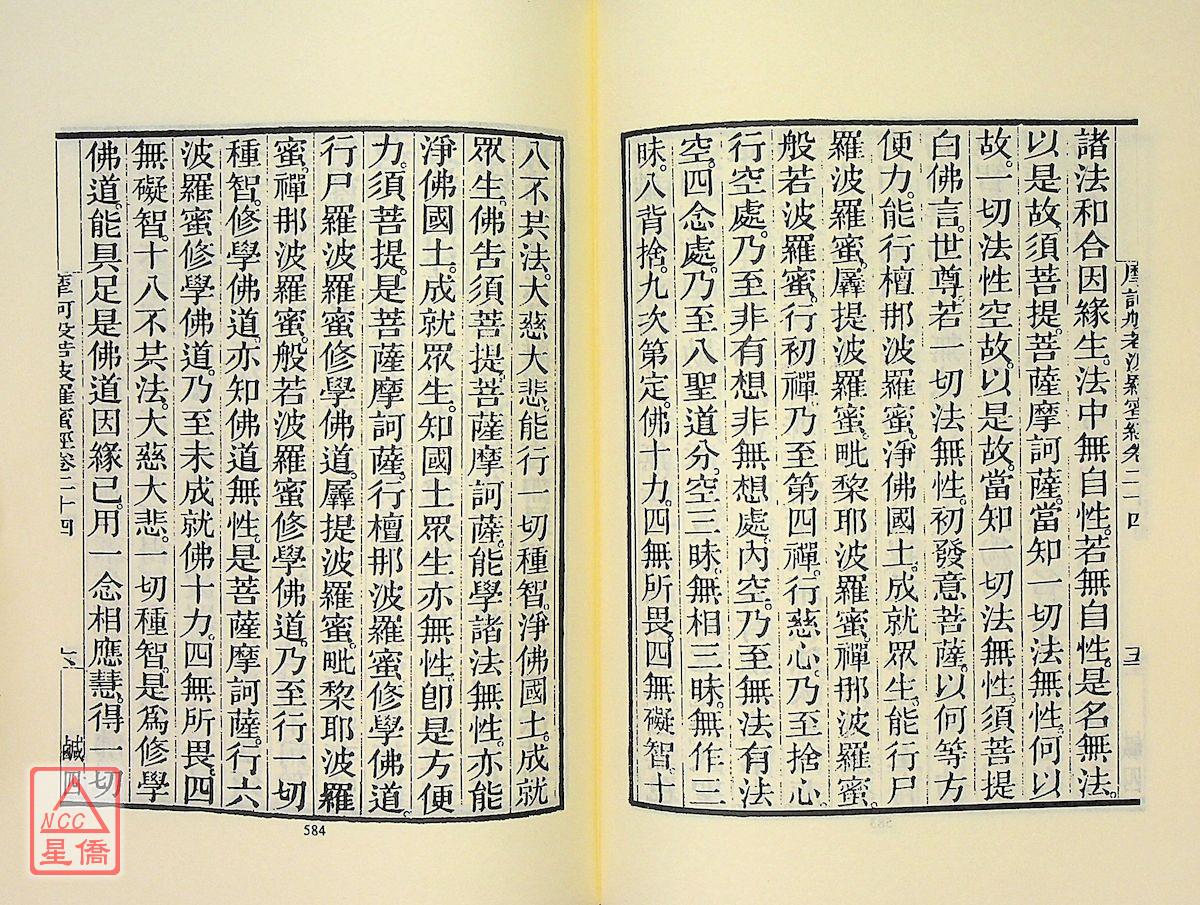 諸法和合因緣生。法中無自性。若無自性。是名無法。
以是故。須菩提。菩薩摩訶薩。當知一切法無性。何以
故。一切法性空故。以是故。當知一切法無性。須菩提
白佛言。世尊。若一切法無性。初發意菩薩。以何等方
便力。能行檀那波羅蜜。淨佛國土。成就眾生。能行尸
羅波羅蜜。羼提波羅蜜。毗棃耶波羅蜜。禪那波羅蜜。
般若波羅蜜。行初禪乃至第四禪。行慈心。乃至捨心。
行空處。乃至非有想非無想處。內空。乃至無法有法
空。四念處。乃至八聖道分。空三昧。無相三昧。無作三
昧。八背捨。九次第定。佛十力。四無所畏。四無礙智。十
八不共法。大慈大悲。能行一切種智。淨佛國土。成就
眾生。佛告須菩提。菩薩摩訶薩。能學諸法無性。亦能
淨佛國土。成就眾生。知國土眾生亦無性。卽是方便
力。須菩提。是菩薩摩訶薩。行檀那波羅蜜修學佛道。
行尸羅波羅蜜修學佛道。羼提波羅蜜。毗棃耶波羅
蜜。禪那波羅蜜。般若波羅蜜修學佛道。乃至行一切
種智。修學佛道。亦知佛道無性。是菩薩摩訶薩。行六
波羅蜜修學佛道。乃至未成就佛十力。四無所畏。四
無礙智。十八不共法。大慈大悲。一切種智。是爲修學
佛道。能具足是佛道因緣已。用一念相應慧。得一切
摩訶般若波羅蜜經卷二十四
鹹四
584
NCC
星僑